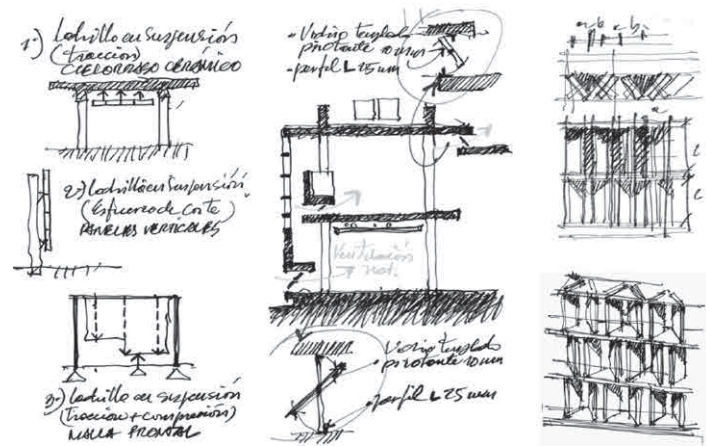 1:) Ladrillo en Suspensión
(tracción)
CIELORRASO CERÁMICO
2:) Ladrillo en Suspensión
(Esfuerzo de Corte)
PANELES VERTICALES
3:) Ladrillo en suspensión
(Tracción + compresión)
MALLA FRONTAL
• Vidrio templado
pivotante 10 mm
- perfil L 25 mm
Ventilación
nat.
• Vidrio templado
pivotante 10 mm
• perfil L 25 mm
a b a b
a